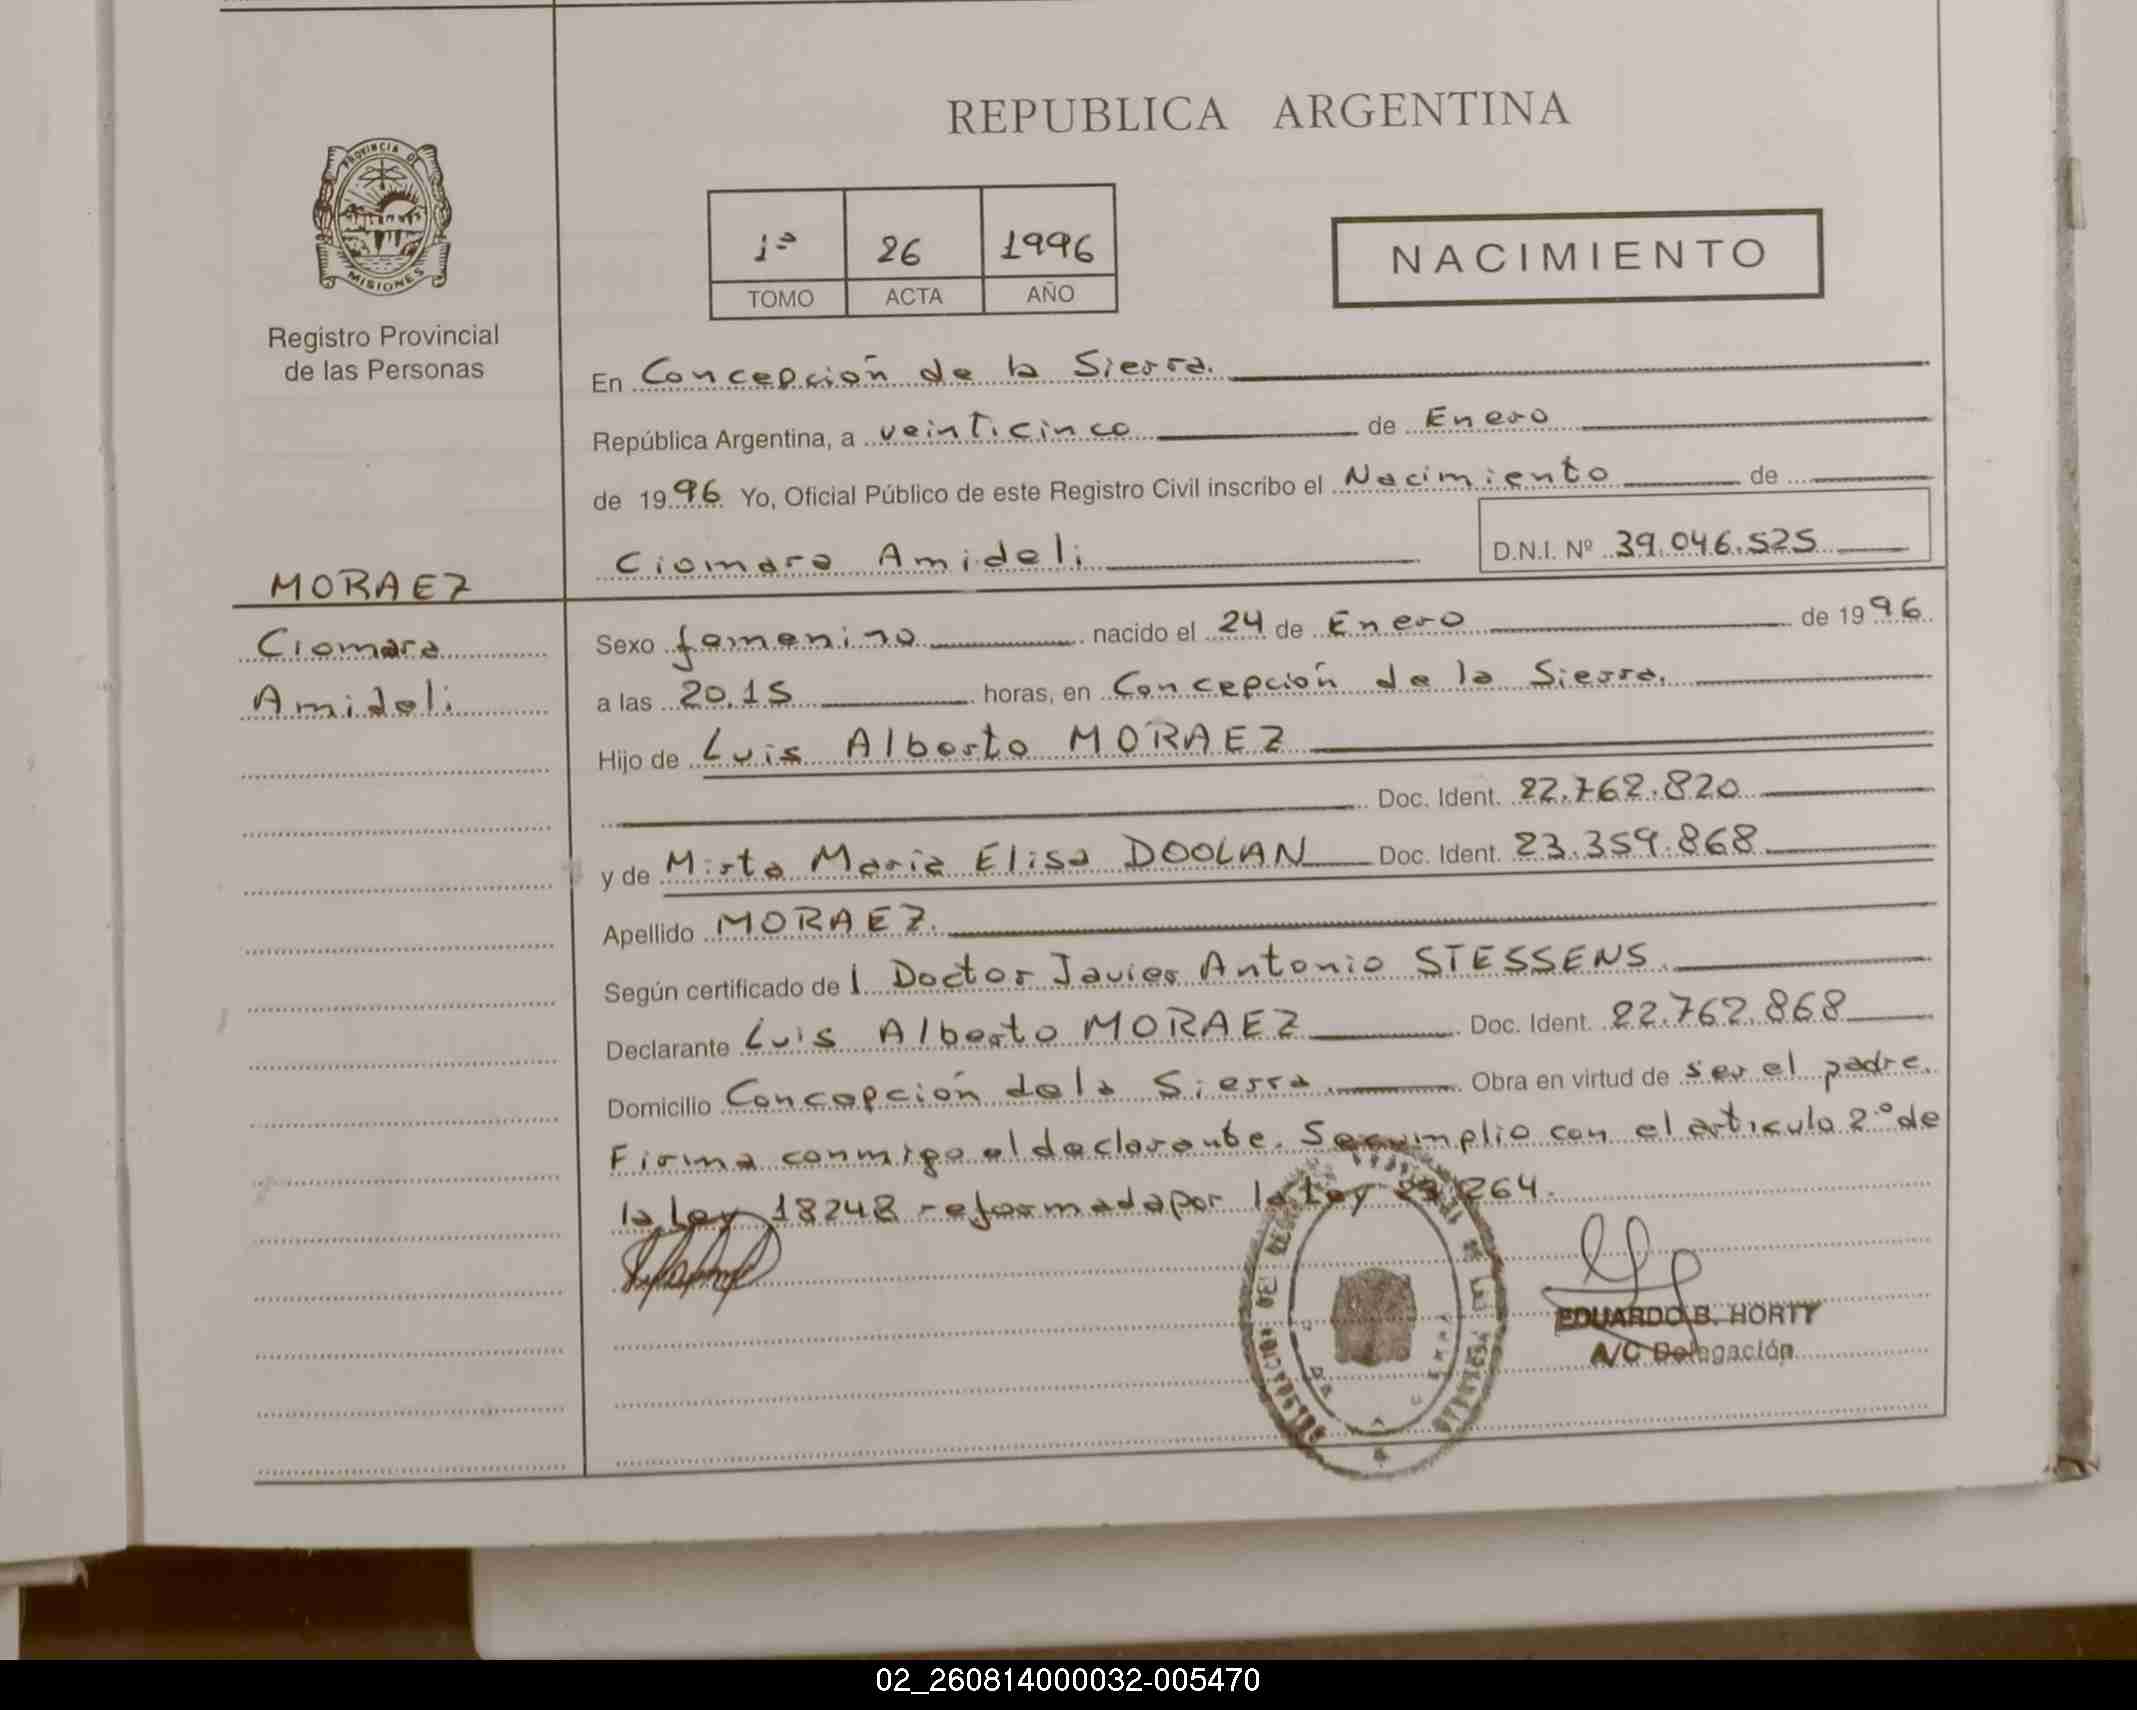 REPUBLICA ARGENTINA
PROVINCIA DE
MISIONES
Registro Provincial
de las Personas
1ª 26 1996
TOMO ACTA AÑO
NACIMIENTO
En Concepción de la Sierra.
República Argentina, a veinticinco de Enero
de 1996 Yo, Oficial Público de este Registro Civil inscribo el Nacimiento de
Ciomara Amideli D.N.I. Nº 39.046.525
MORAEZ
Ciomara
Amideli
Sexo femenino nacido el 24 de Enero de 1996
a las 20.15 horas, en Concepción de la Sierra.
Hijo de Luis Alberto MORAEZ
Doc. Ident. 22.762.820
y de Mirta Maria Elisa DOOLAN Doc. Ident. 23.359.868
Apellido MORAEZ.
Según certificado del Doctor Javier Antonio STESSENS.
Declarante Luis Alberto MORAEZ Doc. Ident. 22.762.868
Domicilio Concepción de la Sierra. Obra en virtud de ser el padre.
Firma conmigo el declarante. Se cumplio con el articulo 2º de
la Ley 18248 reformada por la Ley 264.
EDUARDO B. HORTT
A/C Delegación
02_260814000032-005470